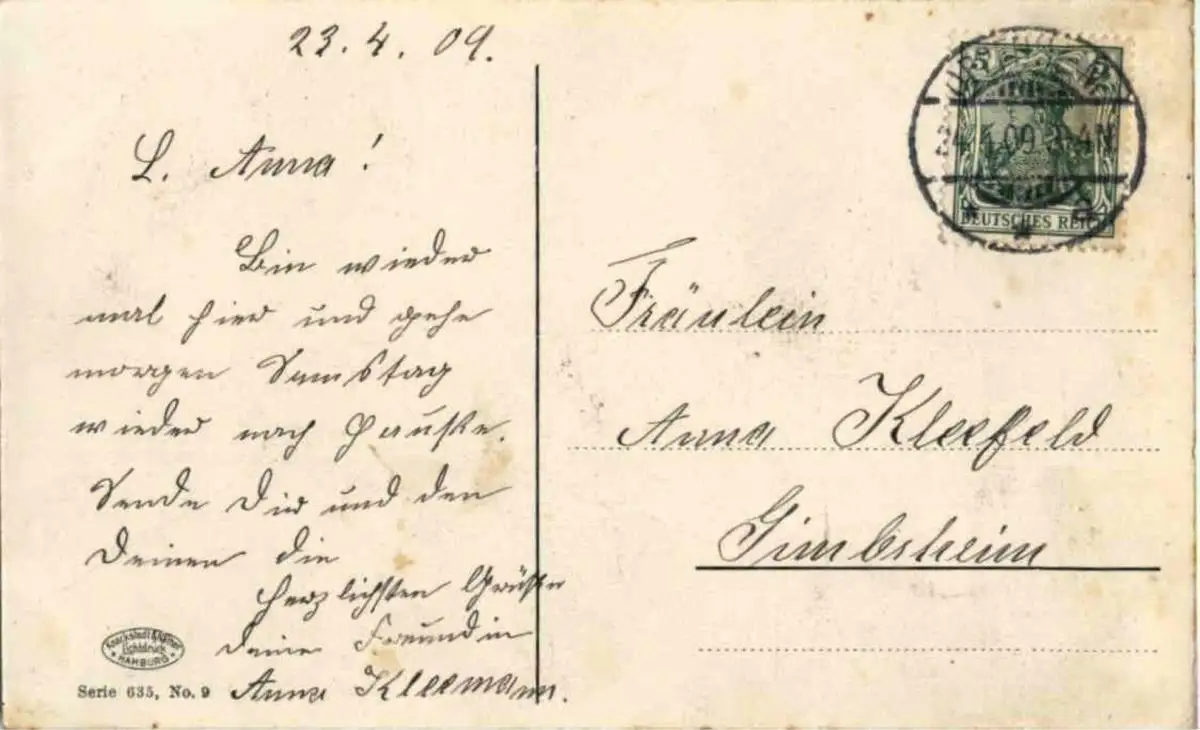 23.4.09.
L. Anna!
Bin wieder
mal hier und gehe
morgen Samstag
wieder nach Hauße.
Sende Dir und den
Deinen die
herzlichsten Grüße
Deine Freundin
Anna Kleemann.
Knackstedt & Näther
Lichtdruck
HAMBURG
Serie 635, No. 9
5
24.4.09
DEUTSCHES REICH
Fräulein
Anna Kleefeld
Gimbsheim